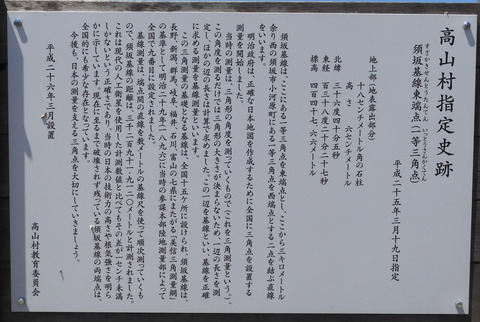 高山村指定史跡
須坂基線東端点(一等三角点)
すざかきせんとうたんてん
いっとうさんかくてん
平成二十五年三月十九日指定
地上部(地表露出部分)
十八センチメートル角の石柱
高さ 六センチメートル
北緯 三十六度四十五秒
東経 百三十八度二十分二十七秒
標高 四百四十七.六六メートル
須坂基線は、ここにある一等三角点を東端点とし、ここから三キロメートル
余り西の須坂市小河原町にある一等三角点を西端点とする二点を結ぶ直線
をいいます。
明治政府は、正確な日本地図を作成するために全国に三角点を設置する
測量を開始しました。
当時の測量は、三角形の角度を測っていくもので(これを三角測量という)、
この角度を測るだけでは三角形の大きさが決まらないため、一辺の長さを測
定し、ほかの辺の長さは計算で求めました。この一辺を基線といい、基線を正確
に求める測量を基線測量といいます。
この三角測量の基礎となる基線は、全国十五ケ所に設けられ、須坂基線は、
長野、新潟、群馬、岐阜、福井、石川、富山の七県にまたがる「美信三角測量網」
の基準として明治二十九年(一八九六)に当時の参謀本部陸地測量部によって
全国で九番目に設定されました。
基線測量は、端点間の直線を数メートルの基線尺を使って順次測っていくも
ので、須坂基線の距離は、三千二百九十一.九一二〇メートルと計測されました。
これは現代の人工衛星を使用した計測数値と比べてもその差が一センチ未満
しかないという正確さであり、当時の日本の技術力の高さや根気強さを明ら
かに示しています。現在に至るまで破壊されず残っている須坂基線の両端点は、
全国的にも希少な存在となっています。
今後も、日本の測量を支える三角点を大切にしていきましょう。
平成二十六年三月設置
高山村教育委員会